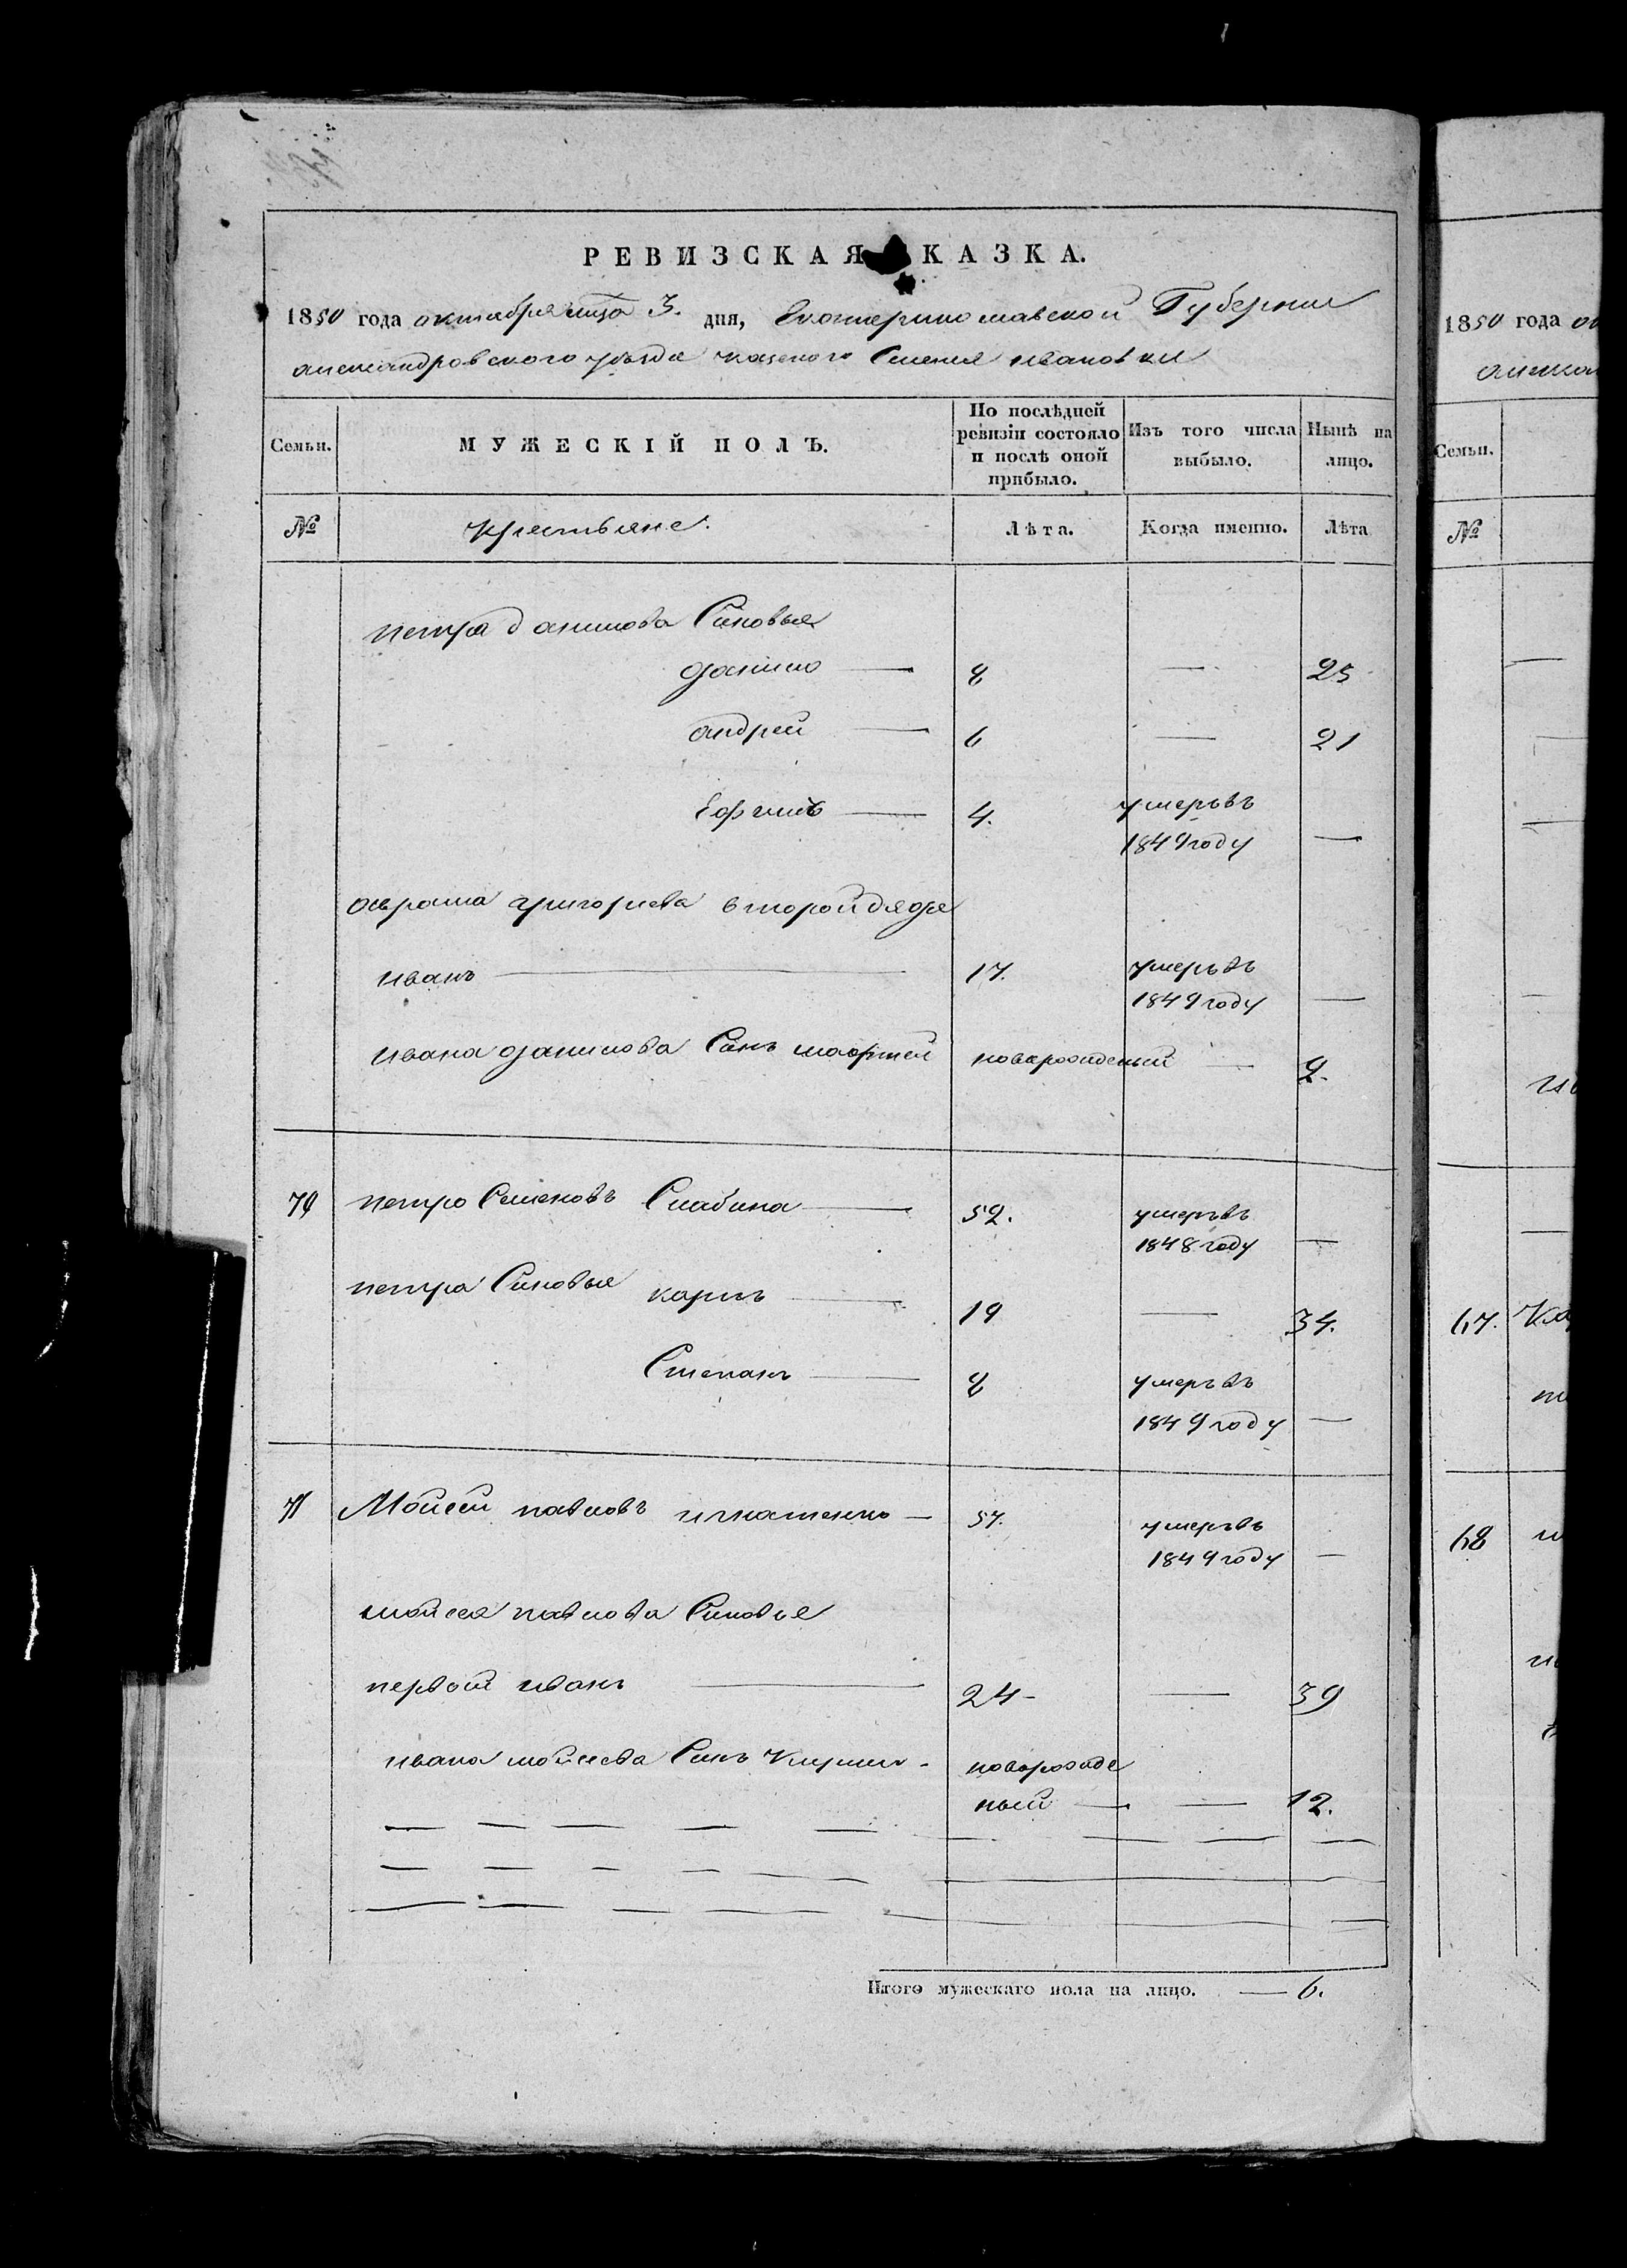 РЕВИЗСКАЯ КАЗКА.
1850 года октября мца 3. дня, Екатеринославской Губернии
александровского уезда казеного Селения ивановки
Семьи. МУЖЕСКІЙ ПОЛЪ. По послѣдней ревизіи состояло и послѣ оной прибыло. Изъ того числа выбыло. Нынѣ на лицо.
№ крестьяне. Лѣта. Когда именно. Лѣта
петра данилова Синовья
данило — 8 — 25
андрей — 6 — 21
Ефимъ — 4. умеръ въ
1849 году —
григориева второй дядя
иванъ — 17. умеръ въ
1849 году —
ивана данилова Синъ новорожденый — 2.
70 петро Семеновъ Слабина — 52. умеръ въ
1848 году —
петра Синовья карпъ — 19 — 34.
Степанъ — 8 умеръ въ
1849 году —
71 Мойсей павловъ игнатенко — 57. умеръ въ
1849 году —
мойсея павлова Синовья
первой иванъ — 24 — — 39
ивана мойсеева Синъ - новорожде
ный — — 12.
Итого мужескаго пола на лицо. — 6.
1850 года
Семьи.
№
67.
68